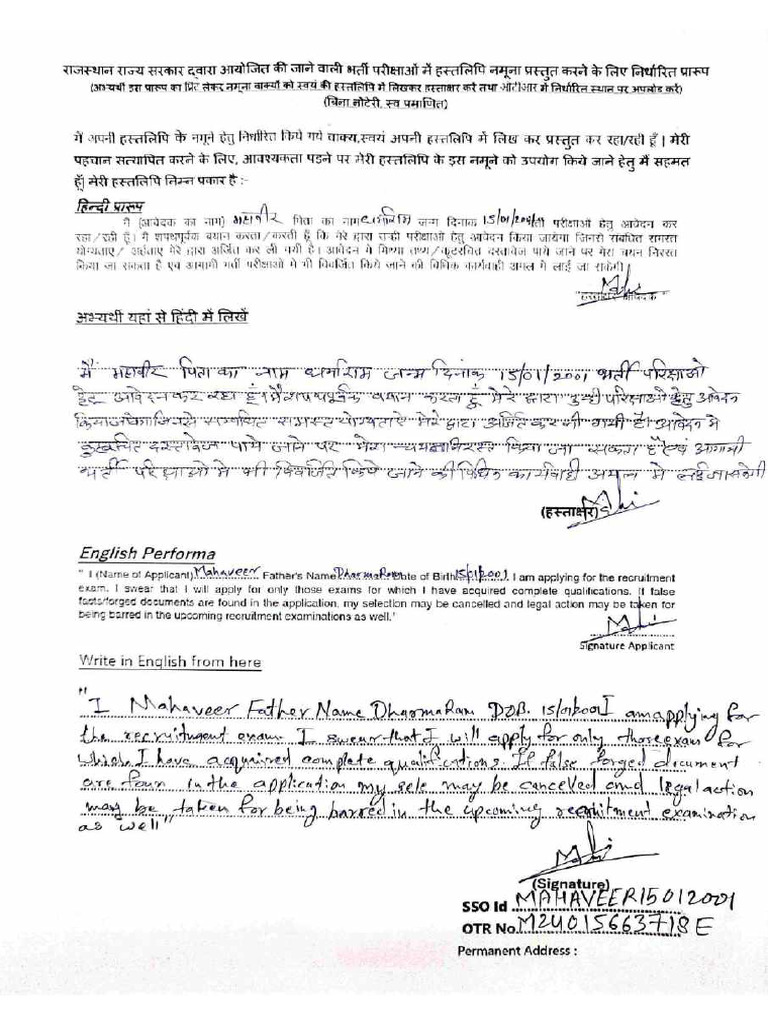 राजस्थान राज्य सरकार द्वारा आयोजित की जाने वाली भर्ती परीक्षाओं में हस्तलिपि नमूना प्रस्तुत करने के लिए निर्धारित प्रारूप
(अभ्यर्थी इस प्रारूप का प्रिंट लेकर नमूना वाक्यों को स्वयं की हस्तलिपि में लिखकर हस्ताक्षर करें तथा ओटीआर में निर्धारित स्थान पर अपलोड करें)
(बिना नोटेरी, स्व प्रमाणित)
में अपनी हस्तलिपि के नमूने हेतु निर्धारित किये गये वाक्य,स्वयं अपनी हस्तलिपि में लिख कर प्रस्तुत कर रहा/रही हूँ | मेरी
पहचान सत्यापित करने के लिए, आवश्यकता पडने पर मेरी हस्तलिपि के इस नमूने को उपयोग किये जाने हेतु मैं सहमत
हूँ| मेरी हस्तलिपि निम्न प्रकार है :-
हिन्दी प्रारूप
मैं (आवेदक का नाम) महावीर पिता का नाम धर्माराम जन्म दिनांक 15/01/2001 परीक्षाओं हेतु आवेदन कर
रहा/रही हूँ। मैं शपथपूर्वक बयान करता/करती हूँ कि मेरे द्वारा उन्हीं परीक्षाओं हेतु आवेदन किया जायेगा जिनसे संबंधित समस्त
योग्यताएं/अर्हताएं मेरे द्वारा अर्जित कर ली गयी है। आवेदन में मिथ्या तथ्य/कूटरचित दस्तावेज पाये जाने पर मेरा चयन निरस्त
किया जा सकता है एवं आगामी भर्ती परीक्षाओं में भी विवर्जित किये जाने की विधिक कार्यवाही अमल में लाई जा सकेगी
हस्ताक्षर आवेदक
अभ्यर्थी यहां से हिंदी में लिखें
मैं महावीर पिता का नाम धर्माराम जन्म दिनांक 15/01/2001 भर्ती परिक्षाओ
हेतु आवेदन कर रहा हूँ। मैं शपथपूर्वक बयान करता हूँ मेरे द्वारा उन्ही परिक्षाओ हेतु आवेदन
किया जायेगा जिनसे सम्बंधित समस्त योग्यताऐ मेरे द्वारा अर्जित कर ली गयी है। आवेदन मे
दस्तावेज पाये जाने पर मेरा चयन निरस्त किया जा सकता है एवं आगामी
भर्ती परिक्षाओ मे भी विवर्जित किये जाने की विधिक कार्यवाही अमल मे लाई जा सकेगी
(हस्ताक्षर)
English Performa
" I (Name of Applicant) Mahaveer Father's Name DharmaRam Date of Birth 15/01/2001. I am applying for the recruitment
exam. I swear that I will apply for only those exams for which I have acquired complete qualifications. If false
facts/forged documents are found in the application, my selection may be cancelled and legal action may be taken for
being barred in the upcoming recruitment examinations as well.'
Signature Applicant
Write in English from here
"I Mahaveer Father Name DharmaRam DOB. 15/01/2001 I am applying for
the recruitment exam. I swear that I will apply for only those exam for
which I have acquired complete qualifications. If false forged document
are foun in the application my sele may be cancelled and legal action
may be taken for being barred in the upcoming recruitment examination
as well"
(Signature)
SSO Id MAHAVEER15012001
OTR No. M24015663718E
Permanent Address :